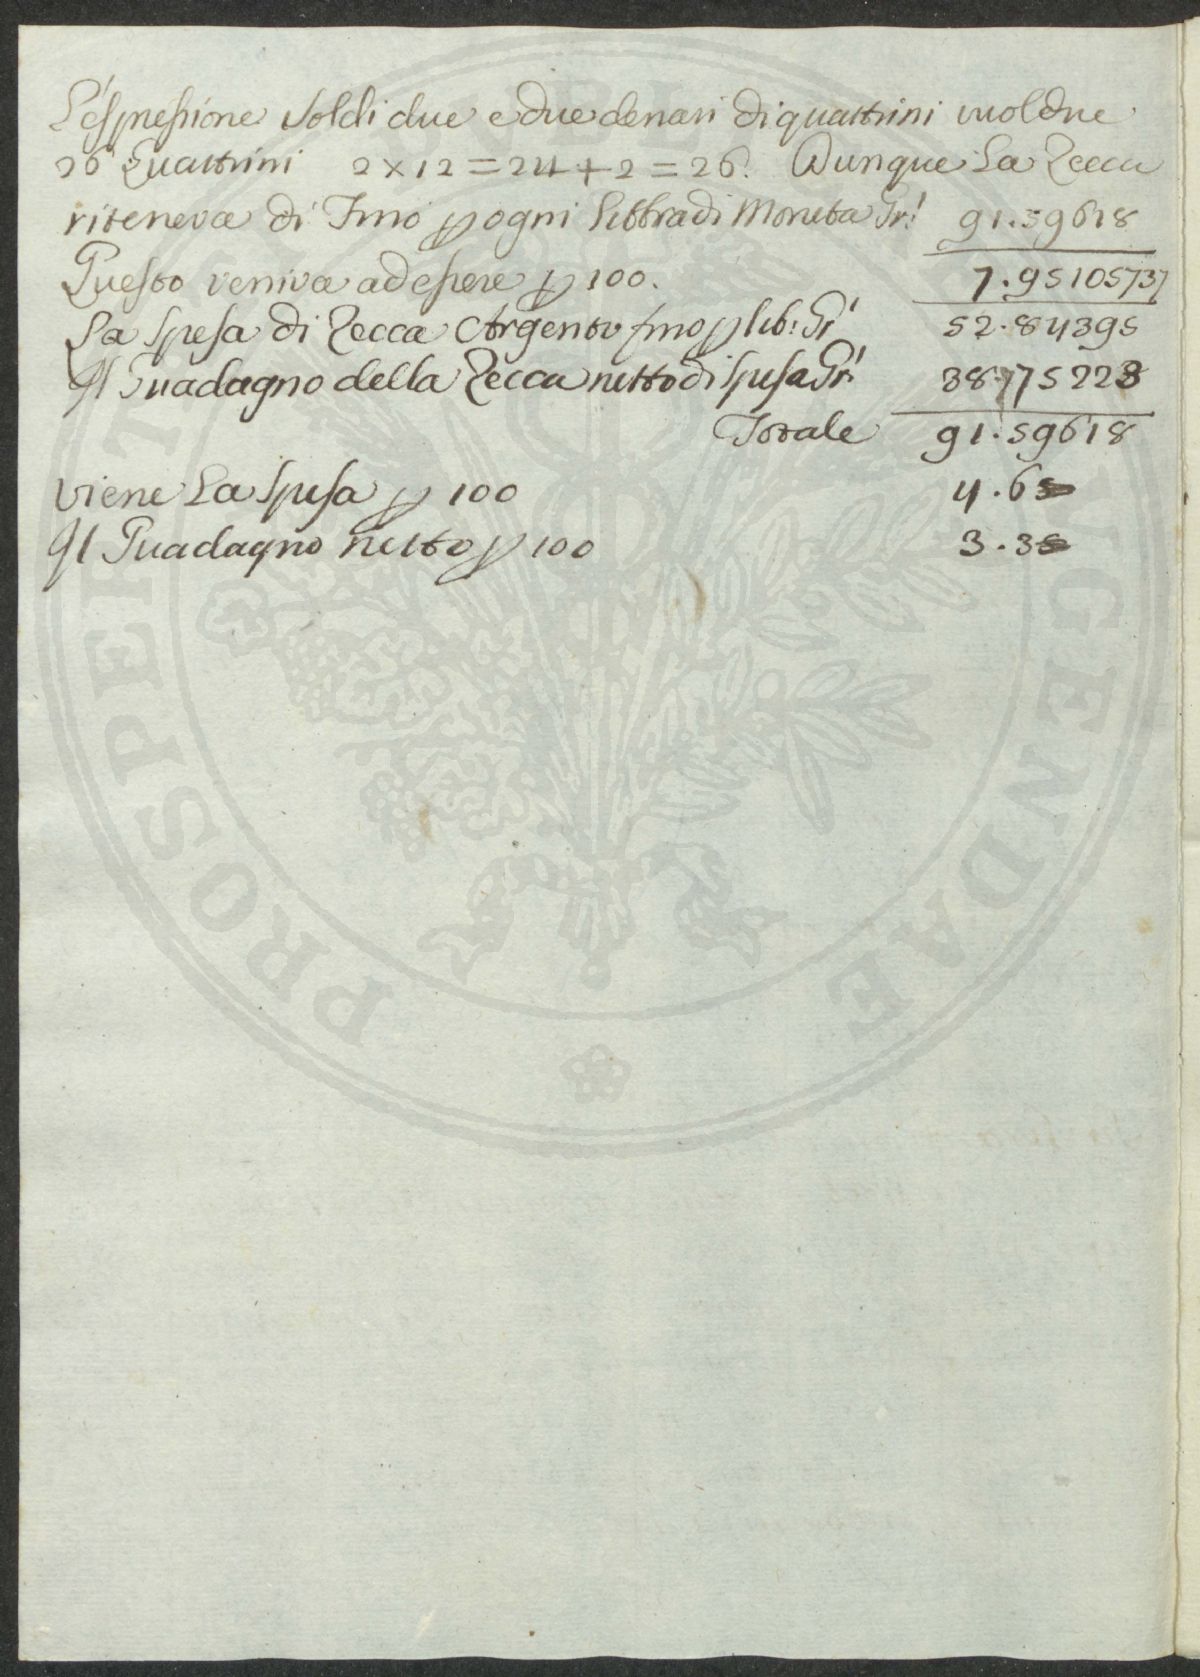 L'espressione Soldi due e due denari di quattrini vuol due
26 Quattrini 2 × 12 = 24 + 2 = 26. Dunque La Zecca
riteneva di Fino p ogni libbra di Moneta Gr! 91.59618
Questo veniva ad essere p 100. 7.95105737
La Spesa di Zecca Argento fino p lib: Gr! 52.84395
Il Guadagno della Zecca netto di spesa Gr! 38.775223
Totale 91.59618
Viene La Spesa p 100 4.6
Il Guadagno netto p 100 3.3
PROSPER AUGENDAE